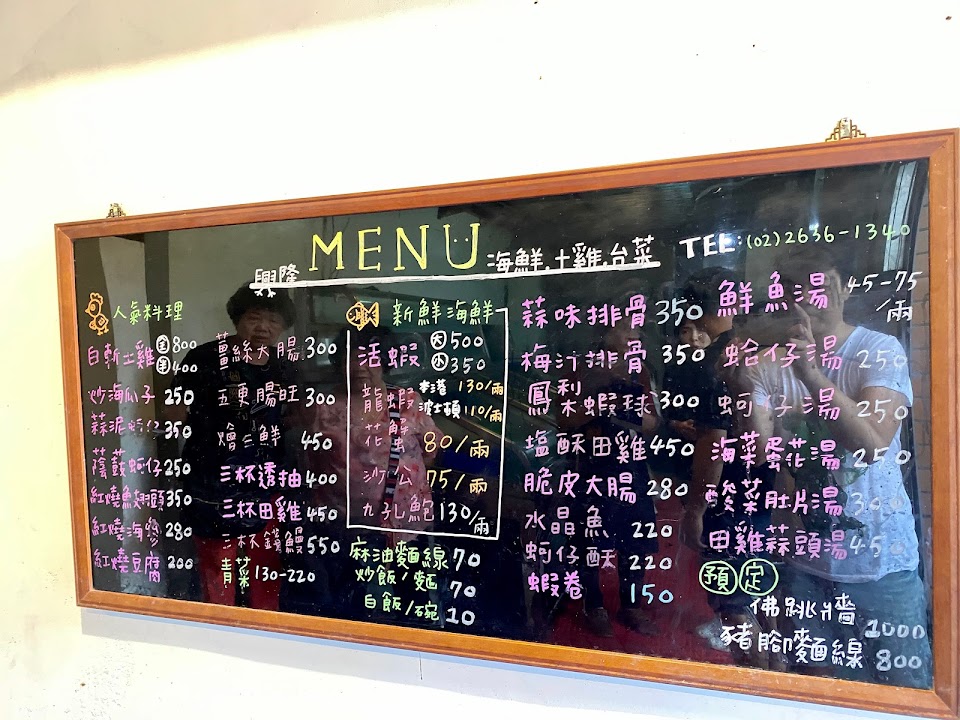 MENU
興隆 海鮮.土雞.台菜
TEL:(02)2636-1340
人氣料理
白斬土雞 全800 半400
炒海瓜子 250
蒜泥蚵仔 350
蔭鼓蚵仔 250
紅燒魚翅頭 350
紅燒海參 280
紅燒豆腐 200
薑絲大腸 300
五更腸旺 300
燴三鮮 450
三杯透抽 400
三杯田雞 450
三杯鱔鰻 550
青菜 130-220
新鮮海鮮
活蝦 大500 小350
龍蝦 本港 130/兩
波士頓 110/兩
花蟹 80/兩
沙公 75/兩
九孔鮑 130/兩
麻油麵線 70
炒飯/麵 70
白飯/碗 10
蒜味排骨 350
梅汁排骨 350
鳳梨蝦球 300
塩酥田雞 450
脆皮大腸 280
水晶魚 220
蚵仔酥 220
蝦卷 150
鮮魚湯 45-75/兩
蛤仔湯 250
蚵仔湯 250
海菜蛋花湯 250
酸菜肚片湯 300
田雞蒜頭湯 450
預定
佛跳牆 1000
豬腳麵線 800